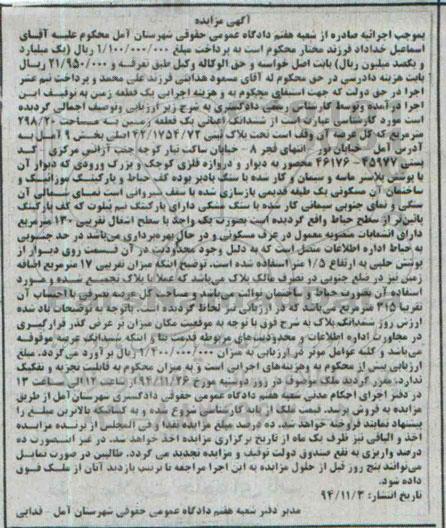 آگهی مزایده
بموجب اجرائیه صادره از شعبه هفتم دادگاه عمومی حقوقی شهرستان آمل محکوم علیه آقای
اسماعیل خداداد فرزند مختار محکوم است به پرداخت مبلغ ۱/۱۰۰/۰۰۰/۰۰۰ ریال (یک میلیارد
و یکصد میلیون ریال) بابت اصل خواسته و حق الوکاله وکیل طبق تعرفه و ۲۱/۹۵۰/۰۰۰ ریال
بابت هزینه دادرسی در حق محکوم له آقای مسعود هدایتی فرزند علی محمد و پرداخت نیم عشر
اجرا در حق دولت که جهت استیفای محکوم به و هزینه اجرایی یک قطعه زمین به توقیف این
اجرا درآمده و توسط کارشناس رسمی دادگستری به شرح زیر ارزیابی و توصیف اجمالی گردیده
است مورد کارشناسی عبارت است از ششدانگ اعیانی یک قطعه زمین به مساحت ۲۹۸/۲۰
مترمربع که کل عرصه آن وقف است تحت پلاک ثبتی ۴۲/۱۷۵۴/۷۲ اصلی بخش ۹ آمل به
آدرس آمل - خیابان نور - انتهای فجر ۸ - خیابان ساکت تبار کوچه جنب آژانس مرکزی - کد
پستی ۴۵۹۷۷-۴۶۱۷۶ محصور به دیوار و دروازه فلزی کوچک و بزرگ ورودی که دیوار آن
با پوشش پلاستر ماسه و سیمان و کار شده با سنگ بادبر بوده کف حیاط و پارکینگ موزائیک و
ساختمان آن مسکونی یک طبقه قدیمی بازسازی شده با سقف شیروانی است نمای شمالی آن
سنگی و نمای جنوبی سیمانی کار شده با سنگ مشکی دارای پارکینگ نیم پیلوت که کف پارکینگ
پائین تر از سطح حیاط واقع گردیده است بصورت یک واحد با سطح اشغال تقریبی ۱۳۰ مترمربع
دارای انشعابات منصوبه معمول در عرف مسکونی و در حال بهره برداری می باشد در حد جنوبی
به حیاط اداره اطلاعات متصل است که به دلیل وجود محدودیت در آن قسمت روی دیوار از
پوشش حلبی به ارتفاع ۱/۵ متر استفاده شده است. توضیح اینکه میزان تقریبی ۱۷ مترمربع اضافه
زمین نیز در ضلع جنوبی در تصرف مالک پلاک می باشد که عملا با پلاک تجمیع شده و مورد
استفاده آن بصورت حیاط و ساختمان توالت می باشد و مساحت کل عرصه تصرفی با احتساب آن
تقریبا ۳۱۵ مترمربع می باشد که در ارزیابی نیز لحاظ گردیده است. باتوجه به توضیحات یاد شده
ارزش روز ششدانگ پلاک به شرح فوق با توجه به موقعیت مکان میزان بر عرض گذر قرارگیری
در مجاورت اداره اطلاعات و محدودیت های مربوطه قدمت بنا و اینکه ششدانگ عرصه موقوفه
می باشد و کلیه عوامل موثر در ارزیابی به میزان ۱/۴۰۰/۰۰۰/۰۰۰ ریال برآورد می گردد. مبلغ
ارزیابی بیش از محکوم به و هزینه های اجرایی است و به میزان محکوم به قابلیت تجزیه و تفکیک
ندارد. مقرر گردید ملک موصوف در روز دوشنبه مورخ ۹۴/۱۱/۲۶ از ساعت ۱۲ الی ساعت ۱۳
در دفتر اجرای احکام مدنی شعبه هفتم دادگاه عمومی حقوقی دادگستری شهرستان آمل از طریق
مزایده به فروش برسد. قیمت ملک از بهای کارشناسی شروع شده و به کسانیکه بالاترین مبلغ را
پیشنهاد نمایند فروخته خواهد شد. ده درصد مبلغ مزایده نقدا و فی المجلس از برنده مزایده
اخذ و الباقی نیز ظرف یک ماه از تاریخ برگزاری مزایده اخذ خواهد شد. در غیر اینصورت ده
درصد واریزی به نفع صندوق دولت توقیف و مزایده تجدید می گردد. طالبین در صورت تمایل
می توانند پنج روز قبل از حلول مزایده به این اجرا مراجعه تا ترتیب بازدید آنان از ملک فوق
داده شود.
تاریخ انتشار: ۹۴/۱۱/۳
مدیر دفتر شعبه هفتم دادگاه عمومی حقوقی شهرستان آمل - فدایی